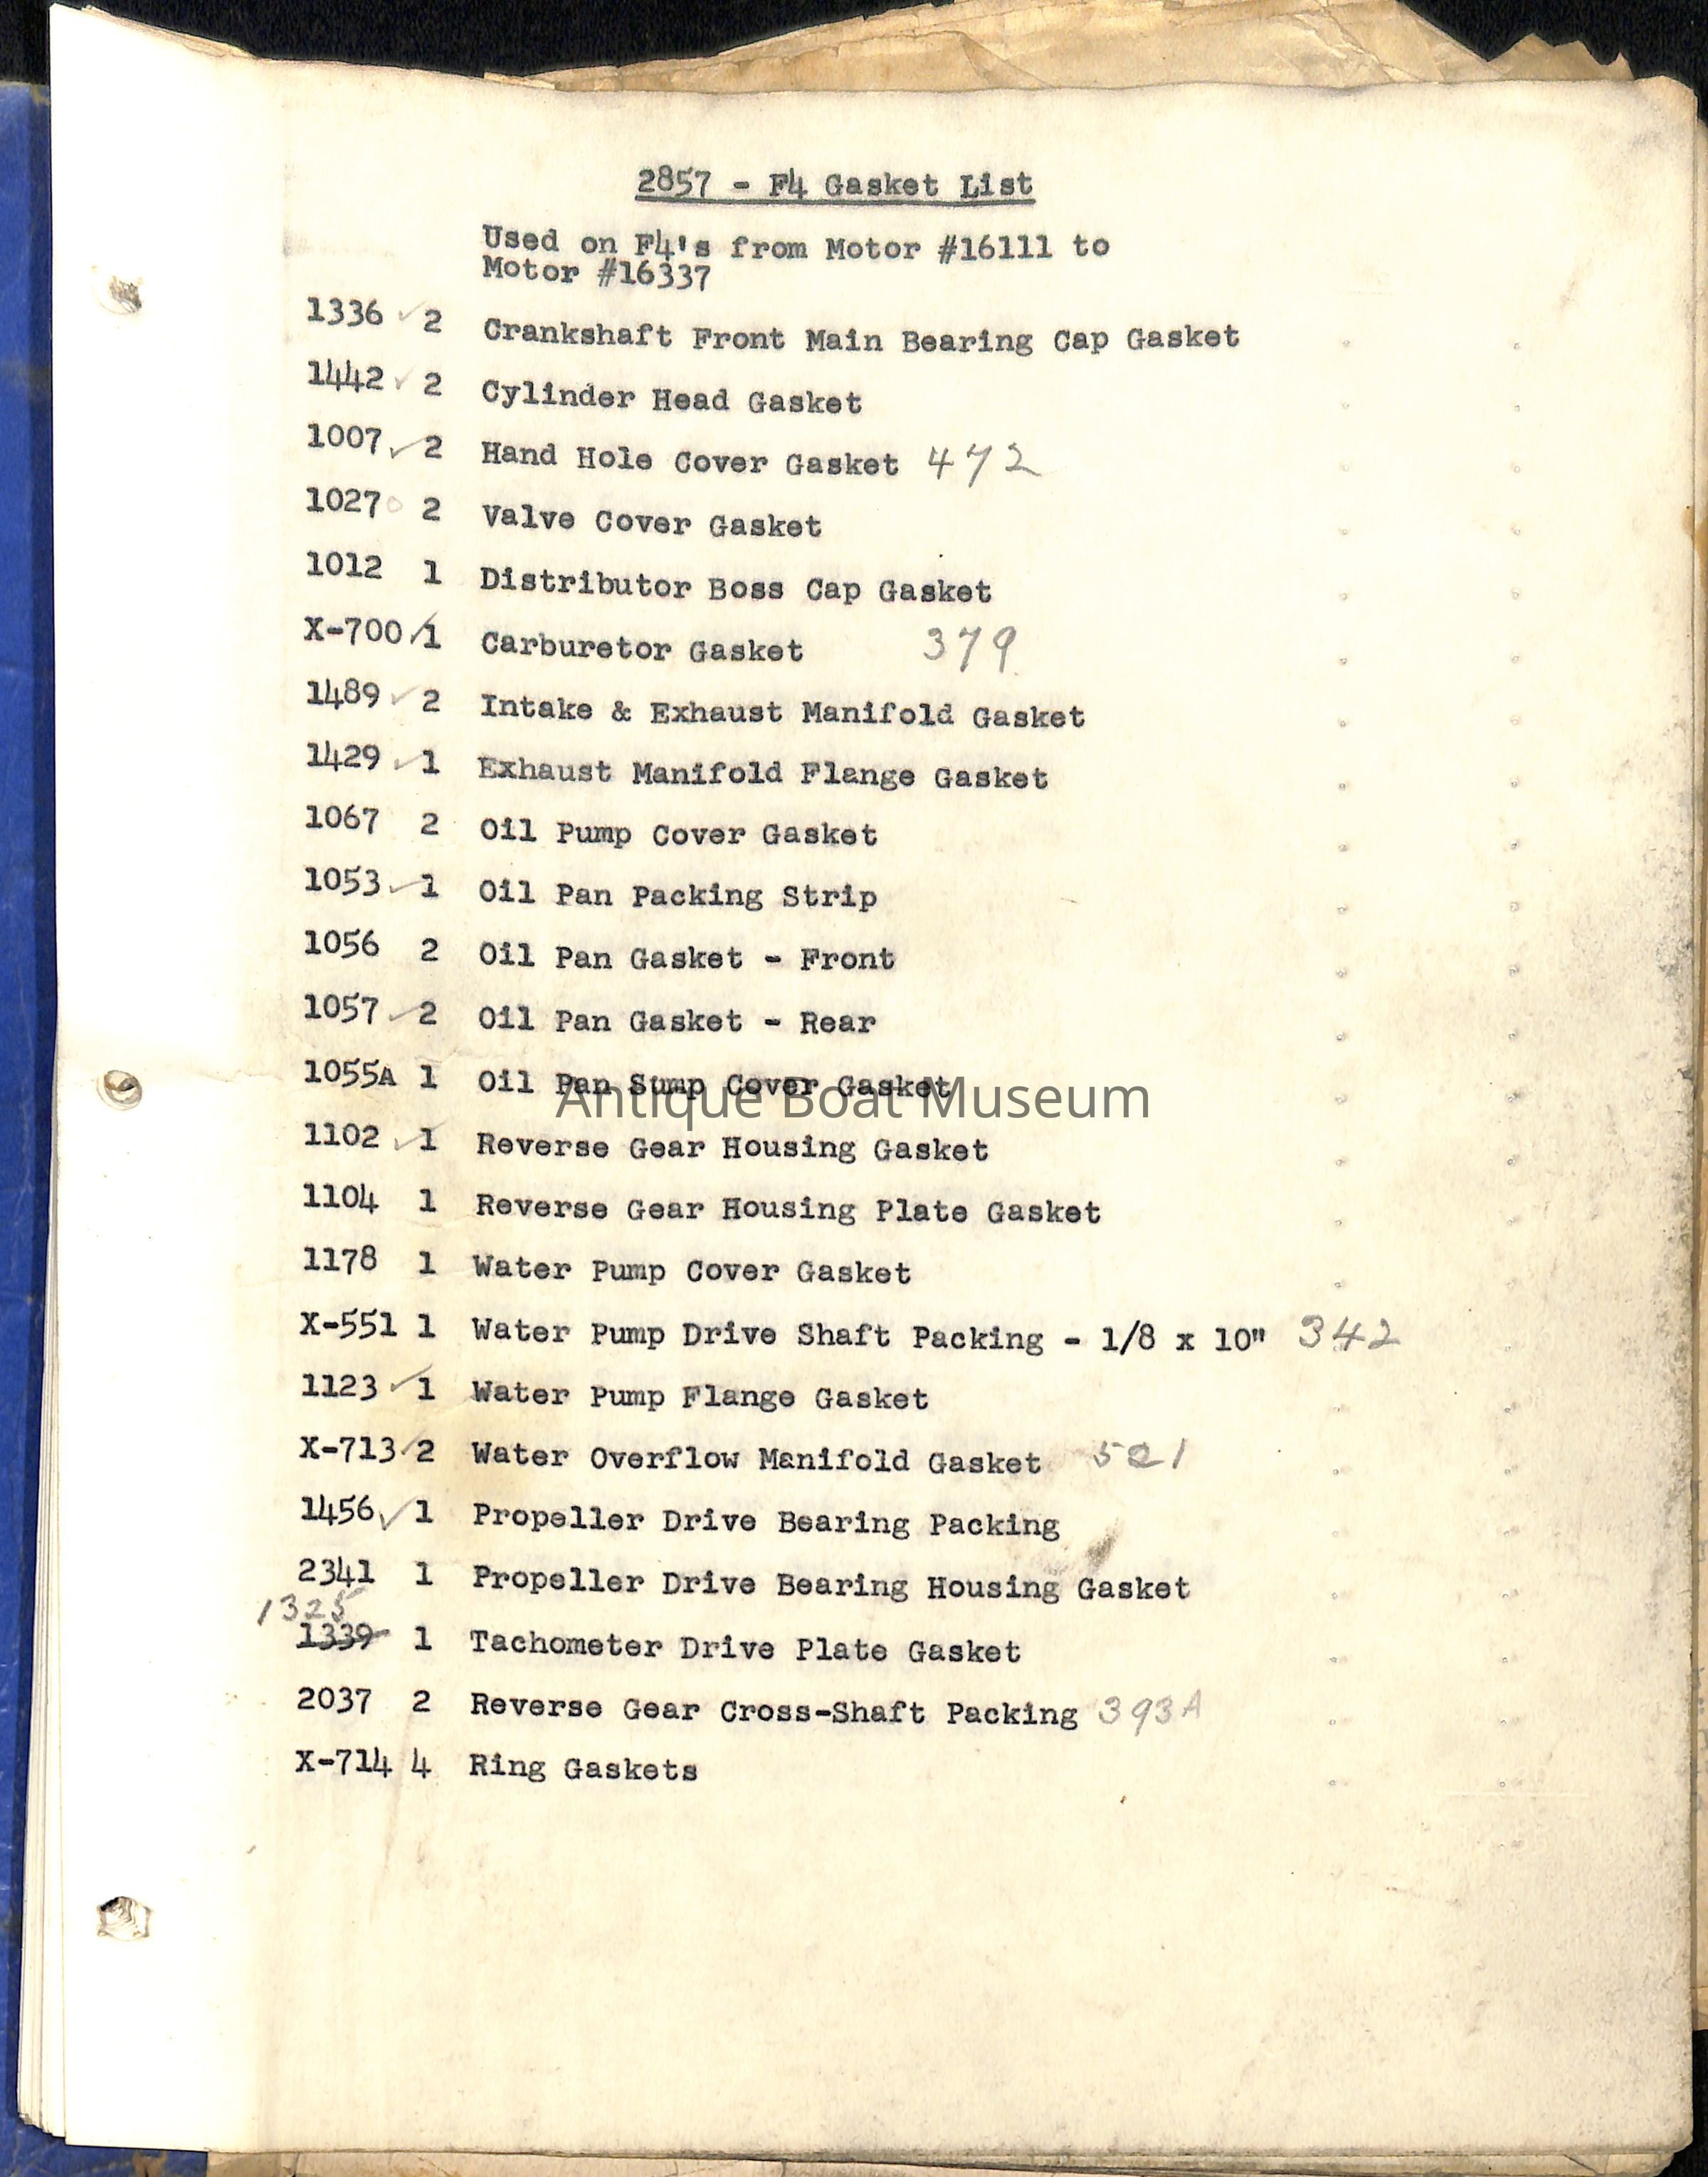 2857 - F4 Gasket List
Used on F4's from Motor #16111 to
Motor #16337
1336 ✓ 2 Crankshaft Front Main Bearing Cap Gasket
1442 ✓ 2 Cylinder Head Gasket
1007 ✓ 2 Hand Hole Cover Gasket 472
1027 2 Valve Cover Gasket
1012 1 Distributor Boss Cap Gasket
X-700 ✓ 1 Carburetor Gasket 379
1489 ✓ 2 Intake & Exhaust Manifold Gasket
1429 ✓ 1 Exhaust Manifold Flange Gasket
1067 2 Oil Pump Cover Gasket
1053 ✓ 1 Oil Pan Packing Strip
1056 2 Oil Pan Gasket - Front
1057 ✓ 2 Oil Pan Gasket - Rear
1055A 1 Oil Pan Sump Cover Gasket
Antique Boat Museum
1102 ✓ 1 Reverse Gear Housing Gasket
1104 1 Reverse Gear Housing Plate Gasket
1178 1 Water Pump Cover Gasket
X-551 1 Water Pump Drive Shaft Packing - 1/8 x 10" 342
1123 ✓ 1 Water Pump Flange Gasket
X-713 ✓ 2 Water Overflow Manifold Gasket 521
1456 ✓ 1 Propeller Drive Bearing Packing
2341 1 Propeller Drive Bearing Housing Gasket
1325
1339 1 Tachometer Drive Plate Gasket
2037 2 Reverse Gear Cross-Shaft Packing 393A
X-714 4 Ring Gaskets